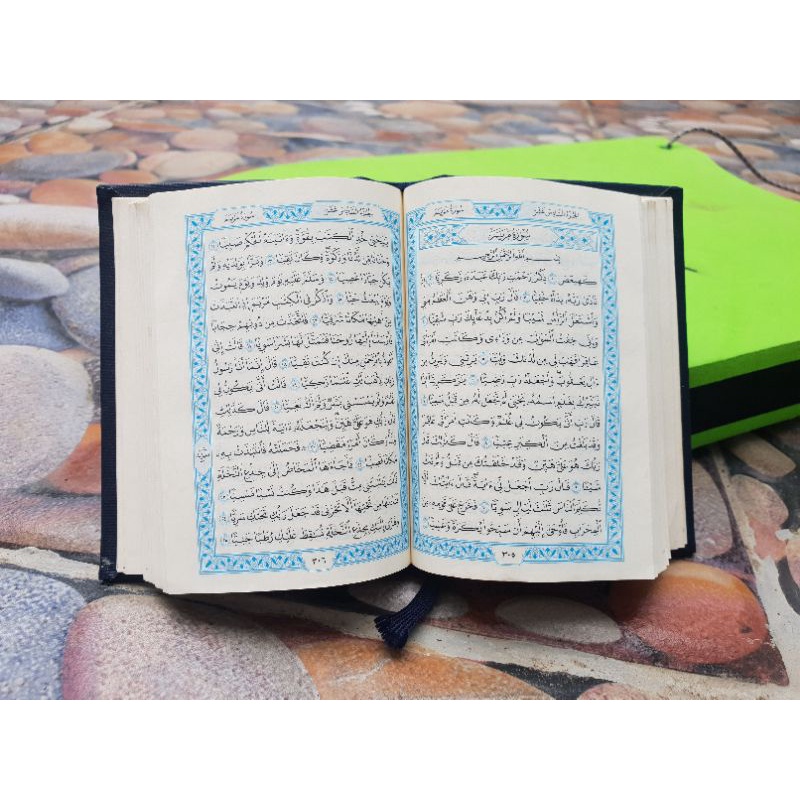 الجزء السادس عشر
سورة مريم
سُورَةُ مَرْيَمَ
بِسْمِ اللَّهِ الرَّحْمَٰنِ الرَّحِيمِ
كٓهيعٓصٓ ١ ذِكْرُ رَحْمَتِ رَبِّكَ عَبْدَهُ زَكَرِيَّا ٢ إِذْ
نَادَىٰ رَبَّهُ نِدَاءً خَفِيًّا ٣ قَالَ رَبِّ إِنِّي وَهَنَ الْعَظْمُ مِنِّي
وَاشْتَعَلَ الرَّأْسُ شَيْبًا وَلَمْ أَكُنْ بِدُعَائِكَ رَبِّ شَقِيًّا ٤
وَإِنِّي خِفْتُ الْمَوَٰلِيَ مِن وَرَاءِي وَكَانَتِ امْرَأَتِي
عَاقِرًا فَهَبْ لِي مِن لَدُنكَ وَلِيًّا ٥ يَرِثُنِي وَيَرِثُ مِنْ
ءَالِ يَعْقُوبَ وَاجْعَلْهُ رَبِّ رَضِيًّا ٦ يَٰزَكَرِيَّا إِنَّا
نُبَشِّرُكَ بِغُلَٰمٍ اسْمُهُ يَحْيَىٰ لَمْ نَجْعَل لَهُ مِن قَبْلُ سَمِيًّا ٧
قَالَ رَبِّ أَنَّىٰ يَكُونُ لِي غُلَٰمٌ وَكَانَتِ امْرَأَتِي عَاقِرًا
وَقَدْ بَلَغْتُ مِنَ الْكِبَرِ عِتِيًّا ٨ قَالَ كَذَٰلِكَ قَالَ
رَبُّكَ هُوَ عَلَيَّ هَيِّنٌ وَقَدْ خَلَقْتُكَ مِن قَبْلُ وَلَمْ تَكُ
شَيْئًا ٩ قَالَ رَبِّ اجْعَل لِي ءَايَةً قَالَ ءَايَتُكَ أَلَّا
تُكَلِّمَ النَّاسَ ثَلَٰثَ لَيَالٍ سَوِيًّا ١٠ فَخَرَجَ عَلَىٰ قَوْمِهِ مِنَ
الْمِحْرَابِ فَأَوْحَىٰ إِلَيْهِمْ أَن سَبِّحُوا بُكْرَةً وَعَشِيًّا ١١
٣٠٥
الجزء السادس عشر
سورة مريم
يَٰيَحْيَىٰ خُذِ الْكِتَٰبَ بِقُوَّةٍ وَءَاتَيْنَٰهُ الْحُكْمَ صَبِيًّا ١٢
وَحَنَانًا مِن لَدُنَّا وَزَكَوٰةً وَكَانَ تَقِيًّا ١٣ وَبَرًّا بِوَٰلِدَيْهِ وَلَمْ
يَكُن جَبَّارًا عَصِيًّا ١٤ وَسَلَٰمٌ عَلَيْهِ يَوْمَ وُلِدَ وَيَوْمَ يَمُوتُ
وَيَوْمَ يُبْعَثُ حَيًّا ١٥ وَاذْكُرْ فِي الْكِتَٰبِ مَرْيَمَ إِذِ انتَبَذَتْ
مِنْ أَهْلِهَا مَكَانًا شَرْقِيًّا ١٦ فَاتَّخَذَتْ مِن دُونِهِمْ حِجَابًا
فَأَرْسَلْنَا إِلَيْهَا رُوحَنَا فَتَمَثَّلَ لَهَا بَشَرًا سَوِيًّا ١٧ قَالَتْ إِنِّي
أَعُوذُ بِالرَّحْمَٰنِ مِنكَ إِن كُنتَ تَقِيًّا ١٨ قَالَ إِنَّمَا أَنَا رَسُولُ
رَبِّكِ لِأَهَبَ لَكِ غُلَٰمًا زَكِيًّا ١٩ قَالَتْ أَنَّىٰ يَكُونُ لِي
غُلَٰمٌ وَلَمْ يَمْسَسْنِي بَشَرٌ وَلَمْ أَكُ بَغِيًّا ٢٠ قَالَ كَذَٰلِكِ
قَالَ رَبُّكِ هُوَ عَلَيَّ هَيِّنٌ وَلِنَجْعَلَهُ ءَايَةً لِلنَّاسِ وَرَحْمَةً
مِنَّا وَكَانَ أَمْرًا مَقْضِيًّا ٢١ فَحَمَلَتْهُ فَانتَبَذَتْ بِهِ
مَكَانًا قَصِيًّا ٢٢ فَأَجَاءَهَا الْمَخَاضُ إِلَىٰ جِذْعِ النَّخْلَةِ
قَالَتْ يَٰلَيْتَنِي مِتُّ قَبْلَ هَٰذَا وَكُنتُ نَسْيًا مَنسِيًّا ٢٣
فَنَادَىٰهَا مِن تَحْتِهَا أَلَّا تَحْزَنِي قَدْ جَعَلَ رَبُّكِ تَحْتَكِ سَرِيًّا ٢٤
وَهُزِّي إِلَيْكِ بِجِذْعِ النَّخْلَةِ تُسَٰقِطْ عَلَيْكِ رُطَبًا جَنِيًّا ٢٥
٣٠٦